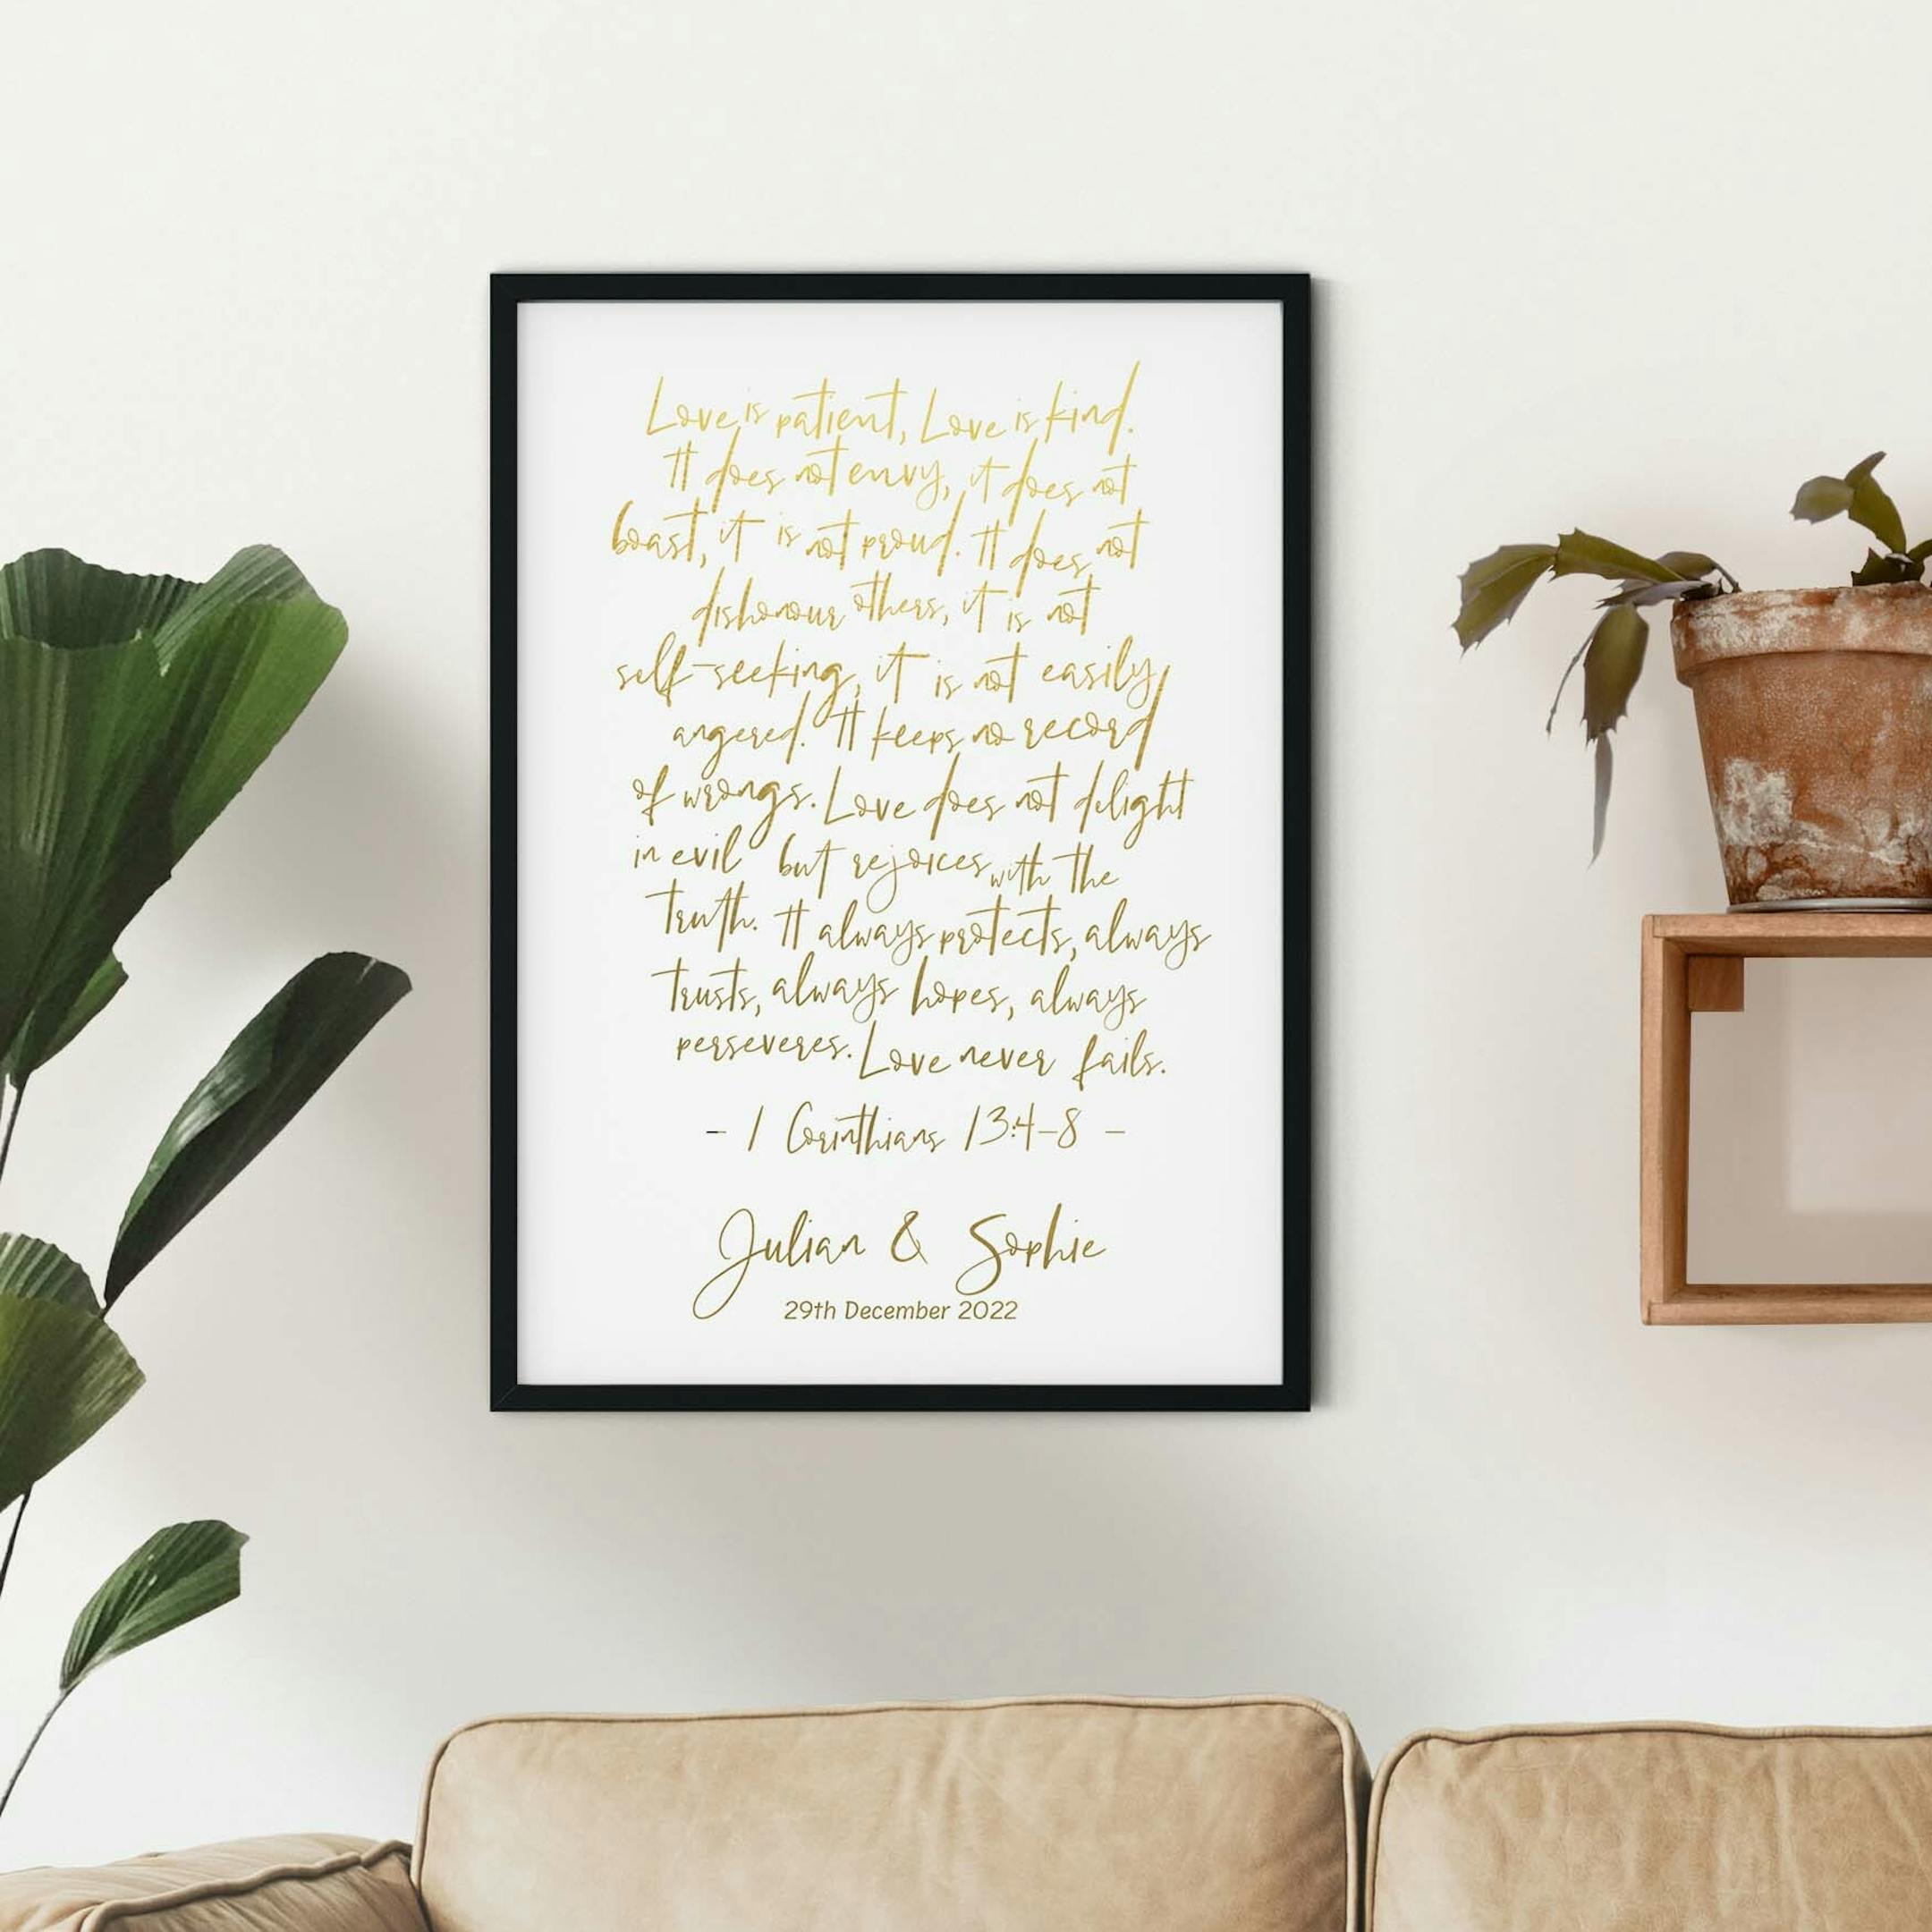 Love is patient, Love is kind.
It does not envy, it does not
boast, it is not proud. It does not
dishonour others, it is not
self-seeking, it is not easily
angered. It keeps no record
of wrongs. Love does not delight
in evil but rejoices with the
truth. It always protects, always
trusts, always hopes, always
perseveres. Love never fails.
- 1 Corinthians 13:4-8 -
Julian & Sophie
29th December 2022